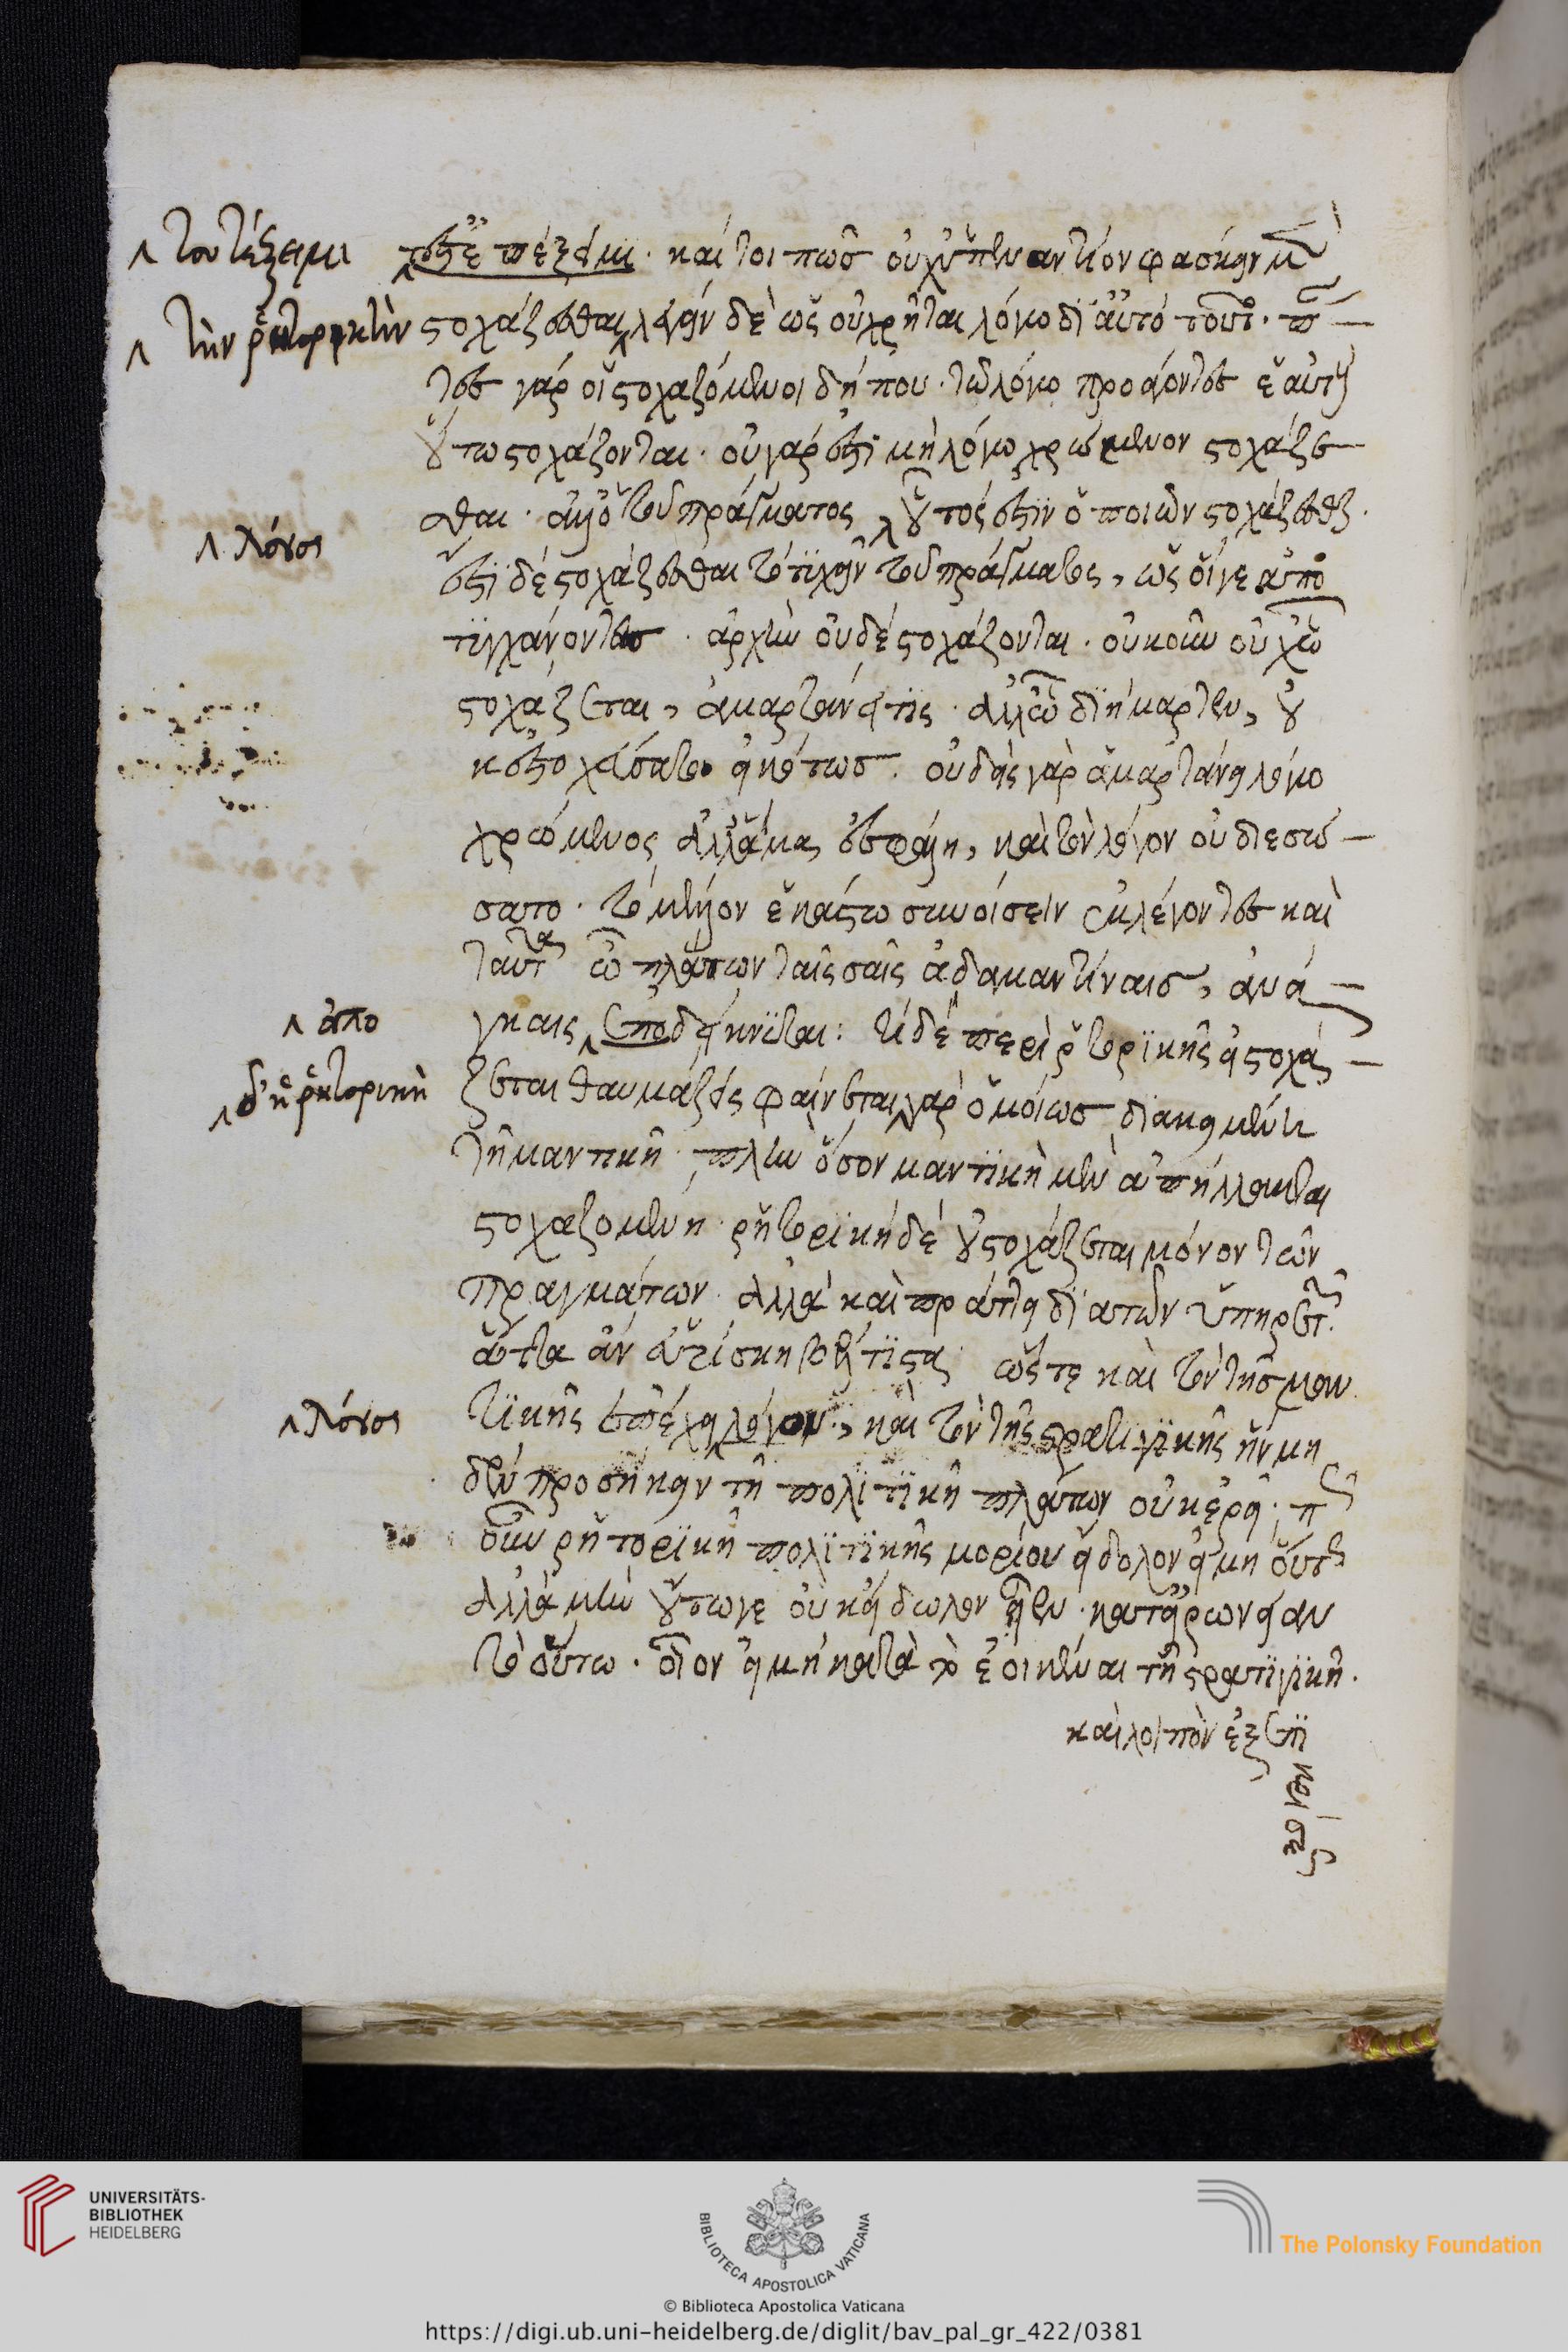 τουτέξειμι
τοῦτ' ἐπέξειμι. καίτοι πῶς οὐχ ὑπεναντίον φάσκειν μὲν
τὴν ῥητορικὴν
στοχάζεσθαι λέγειν δὲ ὡς οὐ χρῆται λόγῳ δι' αὐτὸ τοῦτο.
τες γὰρ οἱ στοχαζόμενοι δήπου. τῷ λόγῳ προσέχοντες
οὕτω στοχάζονται. οὐ γάρ ἐστι μὴ λόγῳ χρώμενον στοχάζε-
λόγος
σθαι. ἀλλ' ὁ τοῦ πράγματος οὗτός ἐστιν ὁ ποιῶν στοχάζεσθαι.
ἔστι δὲ στοχάζεσθαι τὸ τυχεῖν τοῦ πράγματος, ὡς οἵγε ἀπο
τυγχάνοντες. ἀρχὴν οὐδὲ στοχάζονται. οὐκοῦν οὐχ ᾧ
στοχάζεται, ἁμαρτάνει τις. ἀλλ' ᾧ διήμαρτεν, οὐ
κ ἐστοχάσατο εἰκότως. οὐδεὶς γὰρ ἁμαρτάνει λόγῳ
χρώμενος ἀλλ' ἅμα ἐσφάλη, καὶ τὸν λόγον οὐ διεσώ-
σατο. τὸ μέλλον ἑκάστῳ συνοίσειν λέγοντες καὶ
ταῦτα ὦ πλάτων ταῖς σαῖς ἀδαμαντίναις, ἀνά-
ἀπο
γκαις ἐποδείκνυται: τί δὲ περὶ ῥητορικῆς εἰ στοχά-
δ' ἡ ῥητορικὴ
ζεται θαυμάζεις φαίνεται γὰρ ὁμοίως διακειμένη
τῇ μαντικῇ. πλὴν ὅσον μαντικὴ μὲν ἀπήλλακται
στοχαζομένη. ῥητορικὴ δὲ οὐ στοχάζεται μόνον τῶν
πραγμάτων. ἀλλὰ καὶ πράττει διὰ τῶν ὑπηρετῶν
ἅττα ἂν εὑρίσκῃ βέλτιστα. ὥστε καὶ τὸν τῆς μαν
λόγος
τικῆς ἐπέχει λόγον, καὶ τὸν τῆς στρατηγικῆς ἣν μη
δὲν προσήκειν τῇ πολιτικῇ πλάτων οὐκ ἐρεῖ. πῶς
οὖν ῥητορικὴ πολιτικῆς μορίου εἴδωλον εἰ μὴ οὕτως
ἀλλὰ μὴν οὕτωγε οὐκ εἴδωλον
τὸ οὕτω. οἷον εἰ μὴ κατὰ τὸ ἐοικέναι τῇ στρατηγικῇ.
καὶ λοιπὸν ἔξεστι